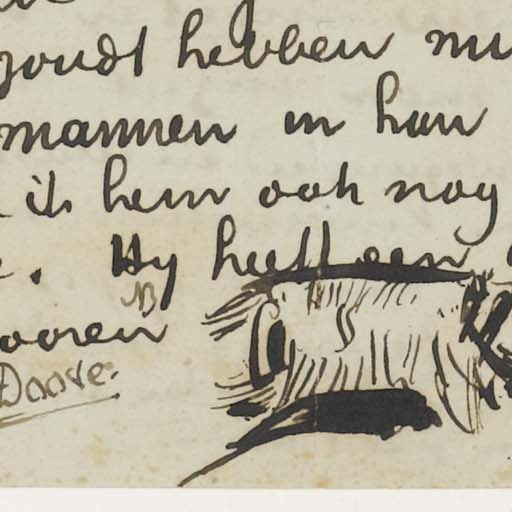 zoudt hebben
mannen in hun
ik hem ook nog
. Hy heeft een
NB
ooren
Doove.